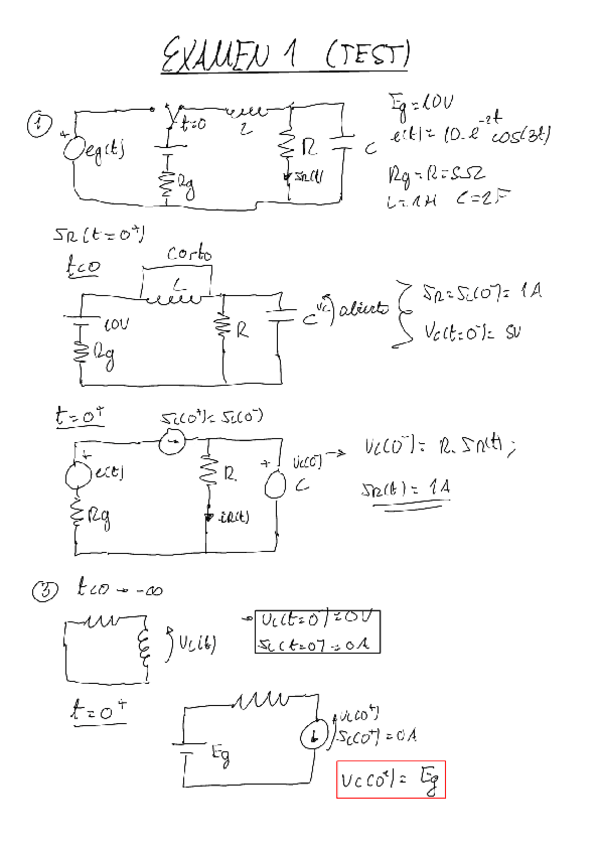 EXAMEN 1 (TEST)
① + eg(t) t=0 L R C Eg=10V
e(t)= 10·e^-2t cos(3t)
Rg iR(t) Rg=R=5Ω
L=1H C=2F
iR(t=0⁺)
t<0 corto
L
10V R C Vc abierto iR=iL(0⁻)= 1A
Rg Vc(t=0⁻)= 5V
t=0⁺ iL(0⁺)=iL(0⁻)
+ e(t) R + Vc(0⁻) C → Vc(0⁻)= R.iR(t);
Rg iR(t) iR(t)= 1A
③ t<0 → -∞
VL(t) → VL(t=0⁻)=0V
iL(t=0⁻)=0A
t=0⁺
Eg VL(0⁺)
iL(0⁺)=0A
VL(0⁺)= Eg